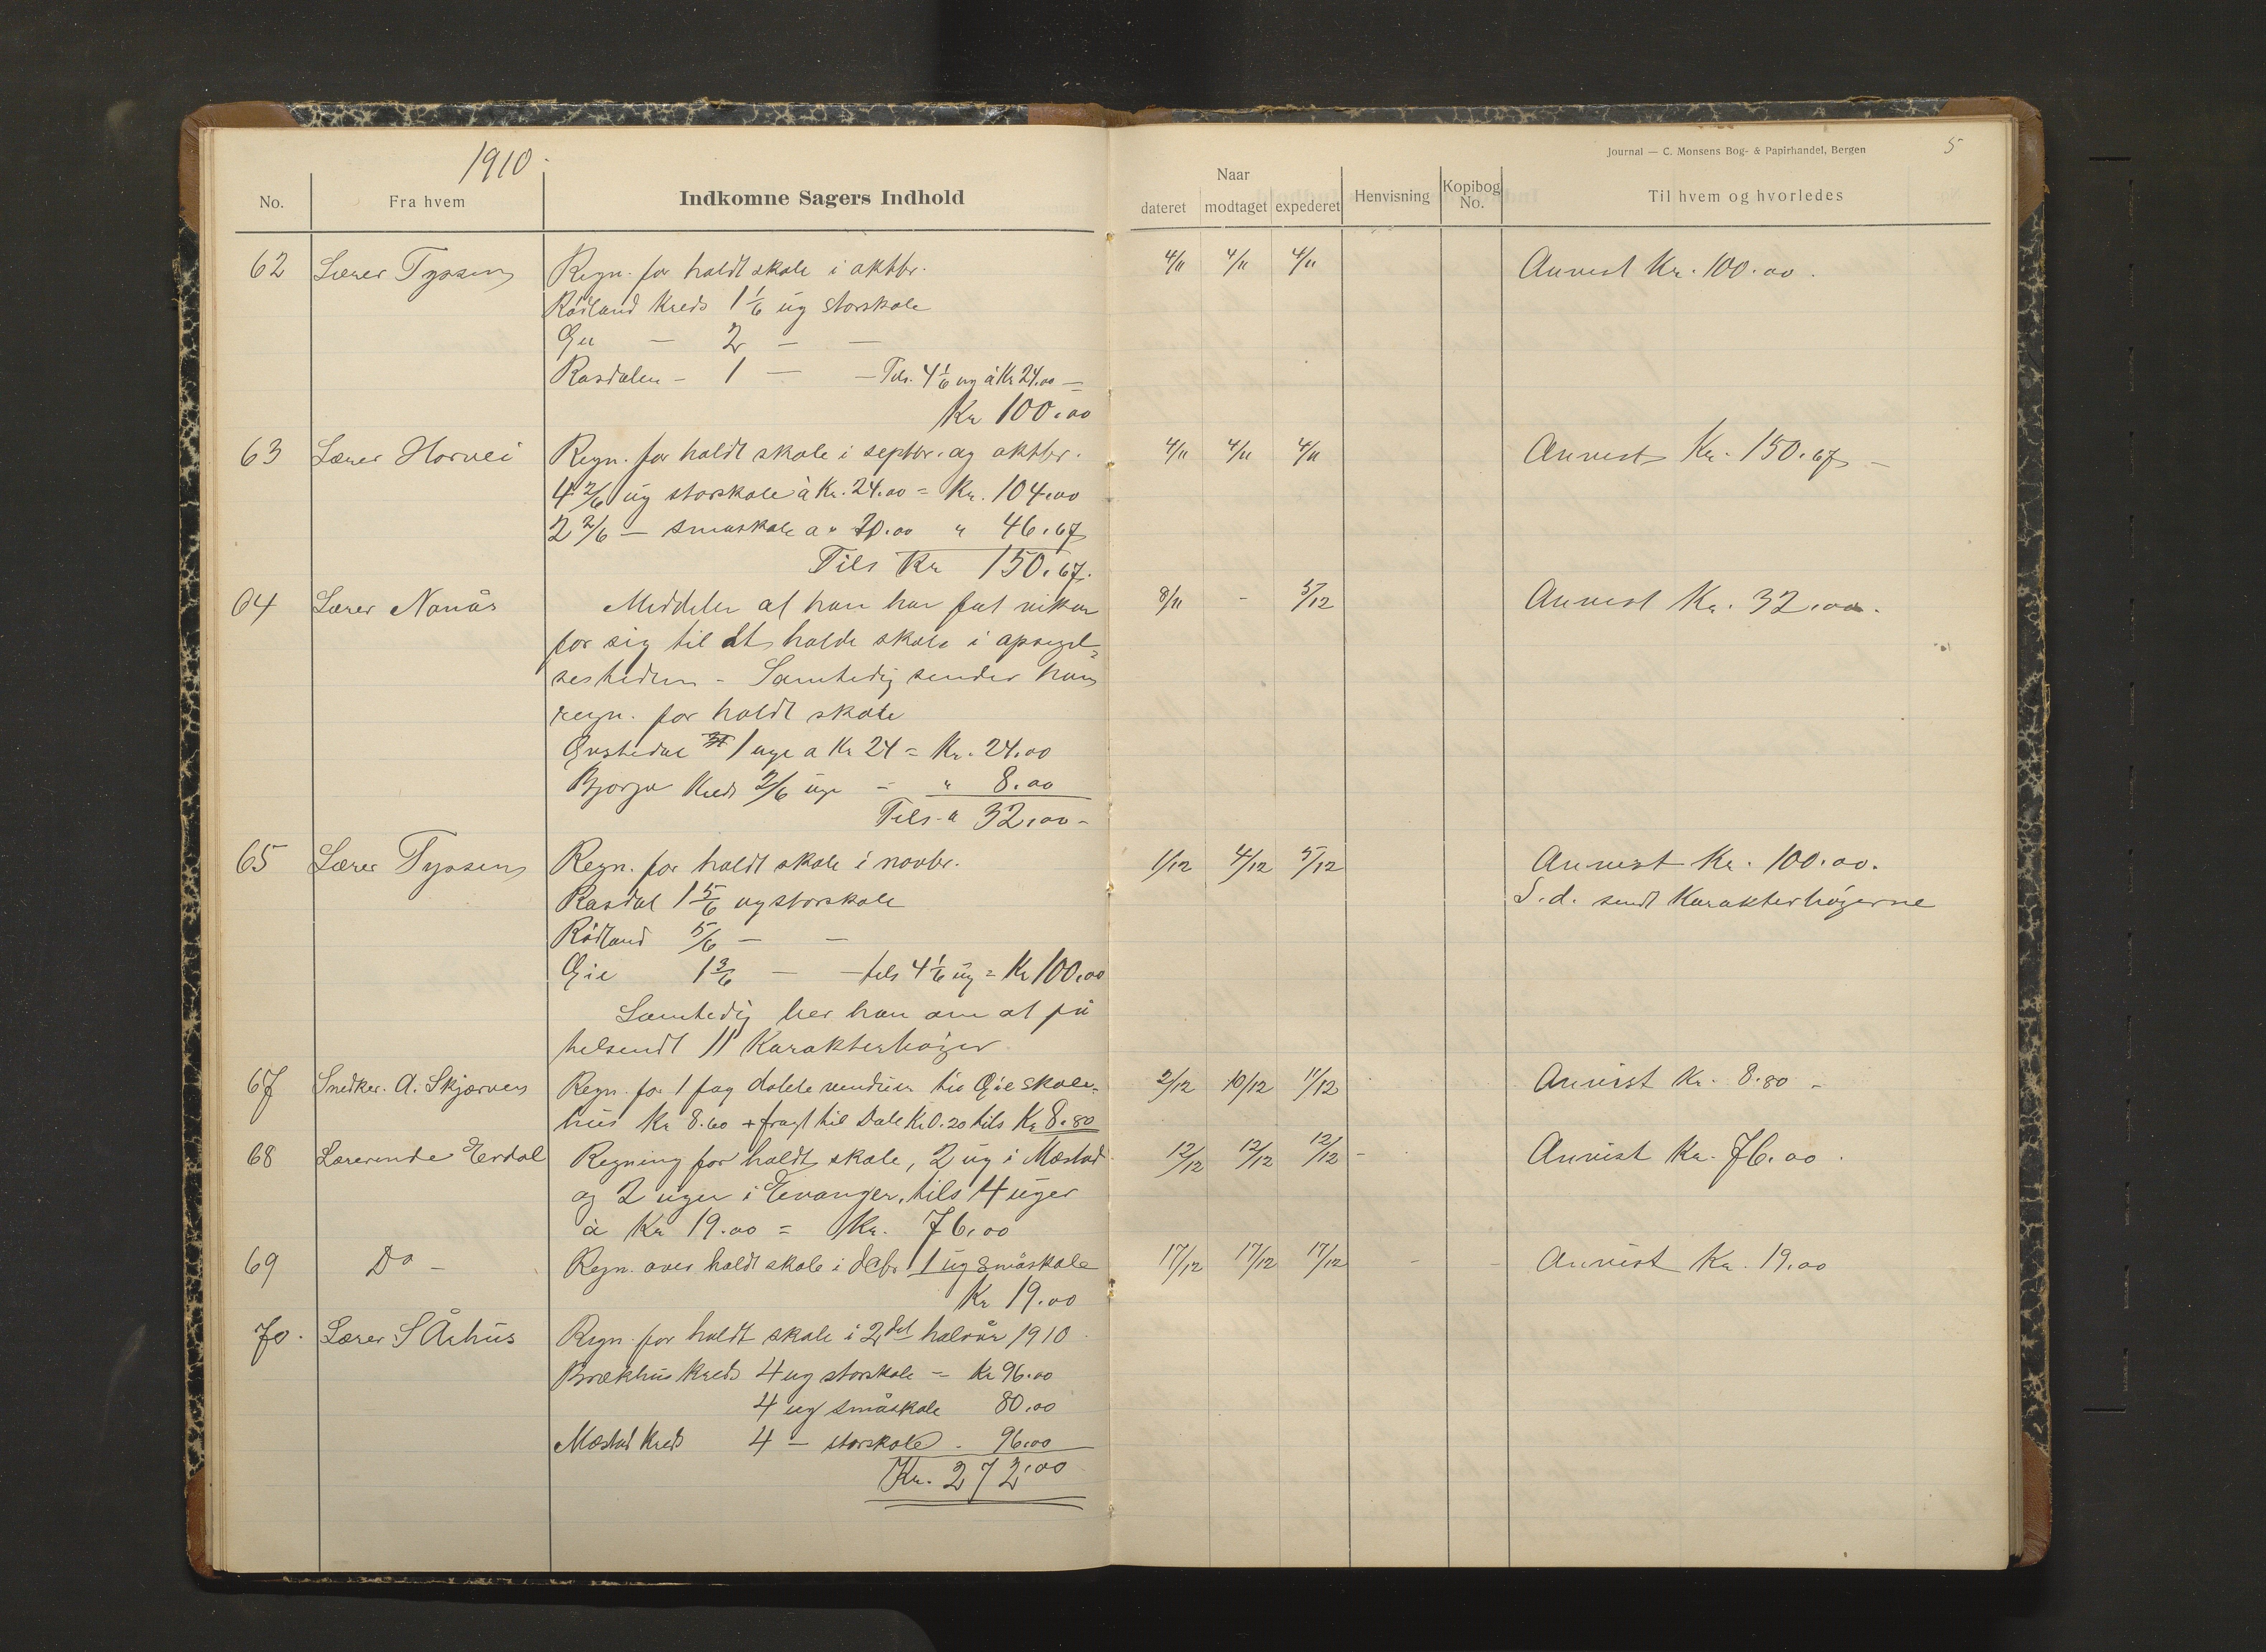 1910.
No.
Fra hvem
Indkomne Sagers Indhold
62 Lærer Tyssen Regn. for holdt skole i oktbr.
Rödland Kreds 1 1/6 ug storskole
Gie — 2 — —
Rasdalen — 1 — — Tils. 4 1/6 ug à Kr 24.00 =
Kr 100.00
63 Lærer Horvei Regn. for holdt skole i septbr. og oktbr.
4 2/6 ug storskole à Kr. 24.00 = Kr. 104.00
2 2/6 — småskole a " 20.00 " 46.67
Tils Kr 150.67.
64 Lærer Nanås Meddeler at han har fåt vikar
for sig til at holde skole i opsigel=
sestiden - Samtidig sender han
regn. for holdt skole
1 uge a Kr 24 = Kr. 24.00
Bjørgo Kreds 2/6 uge - " 8.00
Tils. " 32.00 -
65 Lærer Tyssen Regn. for holdt skole i novbr.
Rasdal 1 5/6 ug storskole
Rödland 5/6 — —
Gie 1 3/6 — — tils 4 1/6 ug = Kr 100.00
Samtidig ber han om at få
tilsendt 11 Karakterbøger
67 Snedker. A. Skjerven Regn. for 1 fag dobbelte vinduer til Gie skole=
hus Kr 8.60 + fragt til Dale Kr 0.20 tils Kr 8.80
68 Lærerinde Erdal Regning for holdt skole, 2 ug i Mæstad
og 2 uger i Evanger, tils 4 uger
à Kr 19.00 = Kr. 76.00
69 Do - Regn. over holdt skole i dcbr 1 ug småskole
Kr 19.00
70. Lærer S Århus Regn. for holdt skole i 2det halvår 1910
Brækhus Kreds 4 ug storskole = Kr 96.00
4 ug småskole 80.00
Mæstad Kreds 4 — storskole . 96.00
Kr. 272.00
Journal — C. Monsens Bog- & Papirhandel, Bergen
5
Naar
dateret
modtaget
expederet
Henvisning
Kopibog
No.
Til hvem og hvorledes
4/11 4/11 4/11 Anvist Kr. 100.00.
4/11 4/11 4/11 Anvist Kr. 150.67 -
8/11 - 5/12 Anvist Kr. 32.00.
1/12 4/12 5/12 Anvist Kr. 100.00.
S.d. sendt Karakterbøgerne
2/12 10/12 11/12 Anvist Kr. 8.80 -
12/12 12/12 12/12 - Anvist Kr. 76.00.
17/12 17/12 17/12 - - Anvist Kr. 19.00